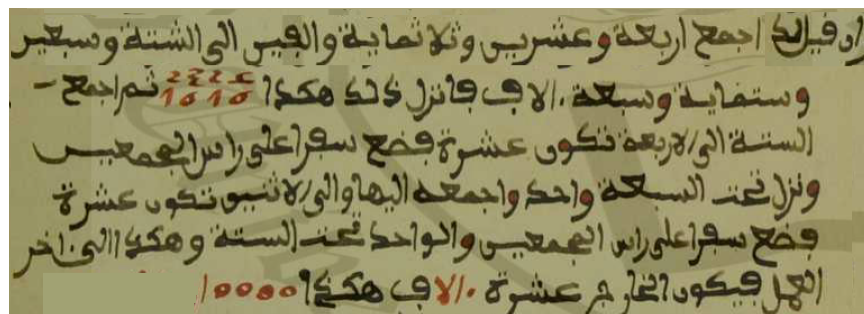 وان قيل لك اجمع اربعة وعشرين وثلاثماية والفين الى الستة وسبعين
وستماية وسبعة ءالاف فانزل ذلك هكذا ثم اجمع
الستة الى الاربعة تكون عشرة فضع سفرا على راس المجمعين
ونزل تحت السبعة واحد واجمعه اليها والى الاثنين تكون عشرة
فضع سفرا على راس المجمعين والواحد تحت الستة وهكذا الى ءاخر
العمل فيكون الخارج عشرة ءالاف هكذا 10000